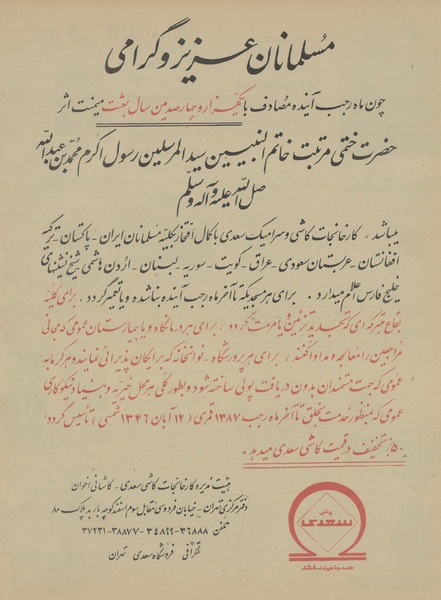 مسلمانان عزیز و گرامی
چون ماه رجب آینده مصادف با یکهزار و چهارصدمین سال بعثت میمنت اثر
حضرت ختمی مرتبت خاتم النبیین سید المرسلین رسول اکرم محمد بن عبدالله
صل الله علیه و آله و سلم
میباشد ، کارخانجات کاشی و سرامیک سعدی با کمال افتخار بکلیه مسلمانان ایران - پاکستان - ترکیه
افغانستان - عربستان سعودی - عراق - کویت - سوریه - لبنان - اردن هاشمی شیخ نشینهای
خلیج فارس اعلام میدارد . برای هر مسجدیکه تا آخر ماه رجب آینده ساخته شده و یا تعمیر گردد . برای کلیه
بقاع متبرکه ای که تجدید تزئین و یا مرمت گردد ، برای هر درمانگاه و یا بیمارستان عمومی که مجانی
مراجعین را معالجه و مداوا کنند ، برای هر پرورشگاه - نوانخانه که برایگان پذیرائی نمایند و هر گرمابه
عمومی که جهت مستمندان بدون دریافت پولی ساخته شود و بطور کلی هر محل خیریه و بنیاد نیکوکاری
عمومی که بمنظور خدمت بخلق تا آخر ماه رجب ۱۳۸۷ قمری (۱۲ آبان ۱۳۴۶ شمسی) تأسیس گردد
۵۰٪ تخفیف در قیمت کاشی سعدی میدهد .
هیئت مدیره کارخانجات کاشی سعدی - کاشانی اخوان
دفتر مرکزی تهران - خیابان فردوسی مقابل سوم اسفند کوچه باربد پلاک ۸۰
تلفن ۳۶۸۸۸ - ۳۴۸۶۹ - ۳۸۸۷۷ - ۳۷۲۳۱
تلگرافی فروشگاه سعدی تهران
کاشی
سعدی
همه جا میدرخشد